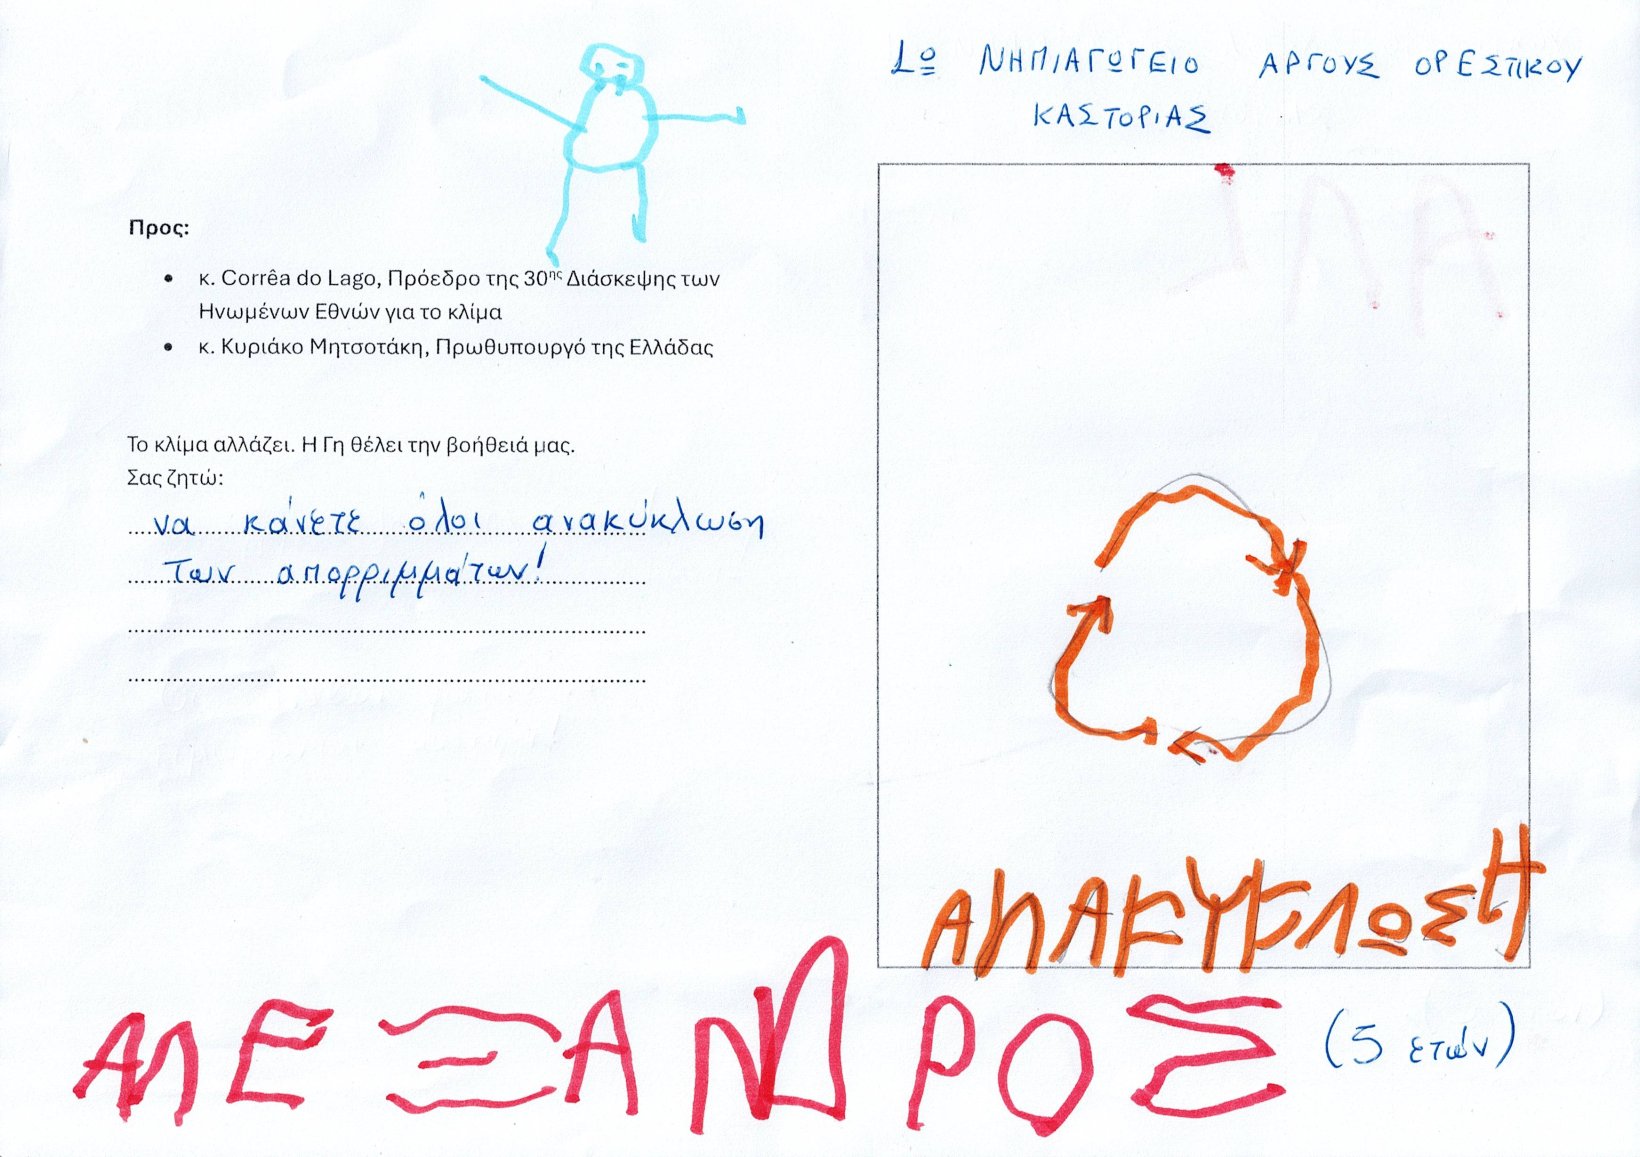 1ο ΝΗΠΙΑΓΩΓΕΙΟ ΑΡΓΟΥΣ ΟΡΕΣΤΙΚΟΥ
ΚΑΣΤΟΡΙΑΣ
Προς:
• κ. Corrêa do Lago, Πρόεδρο της 30ης Διάσκεψης των
Ηνωμένων Εθνών για το κλίμα
• κ. Κυριάκο Μητσοτάκη, Πρωθυπουργό της Ελλάδας
Το κλίμα αλλάζει. Η Γη θέλει την βοήθειά μας.
Σας ζητώ:
να κάνετε όλοι ανακύκλωση
των απορριμμάτων!
ΑΝΑΚΥΚΛΩΣΗ
ΑΛΕΞΑΝΔΡΟΣ
(5 ετών)